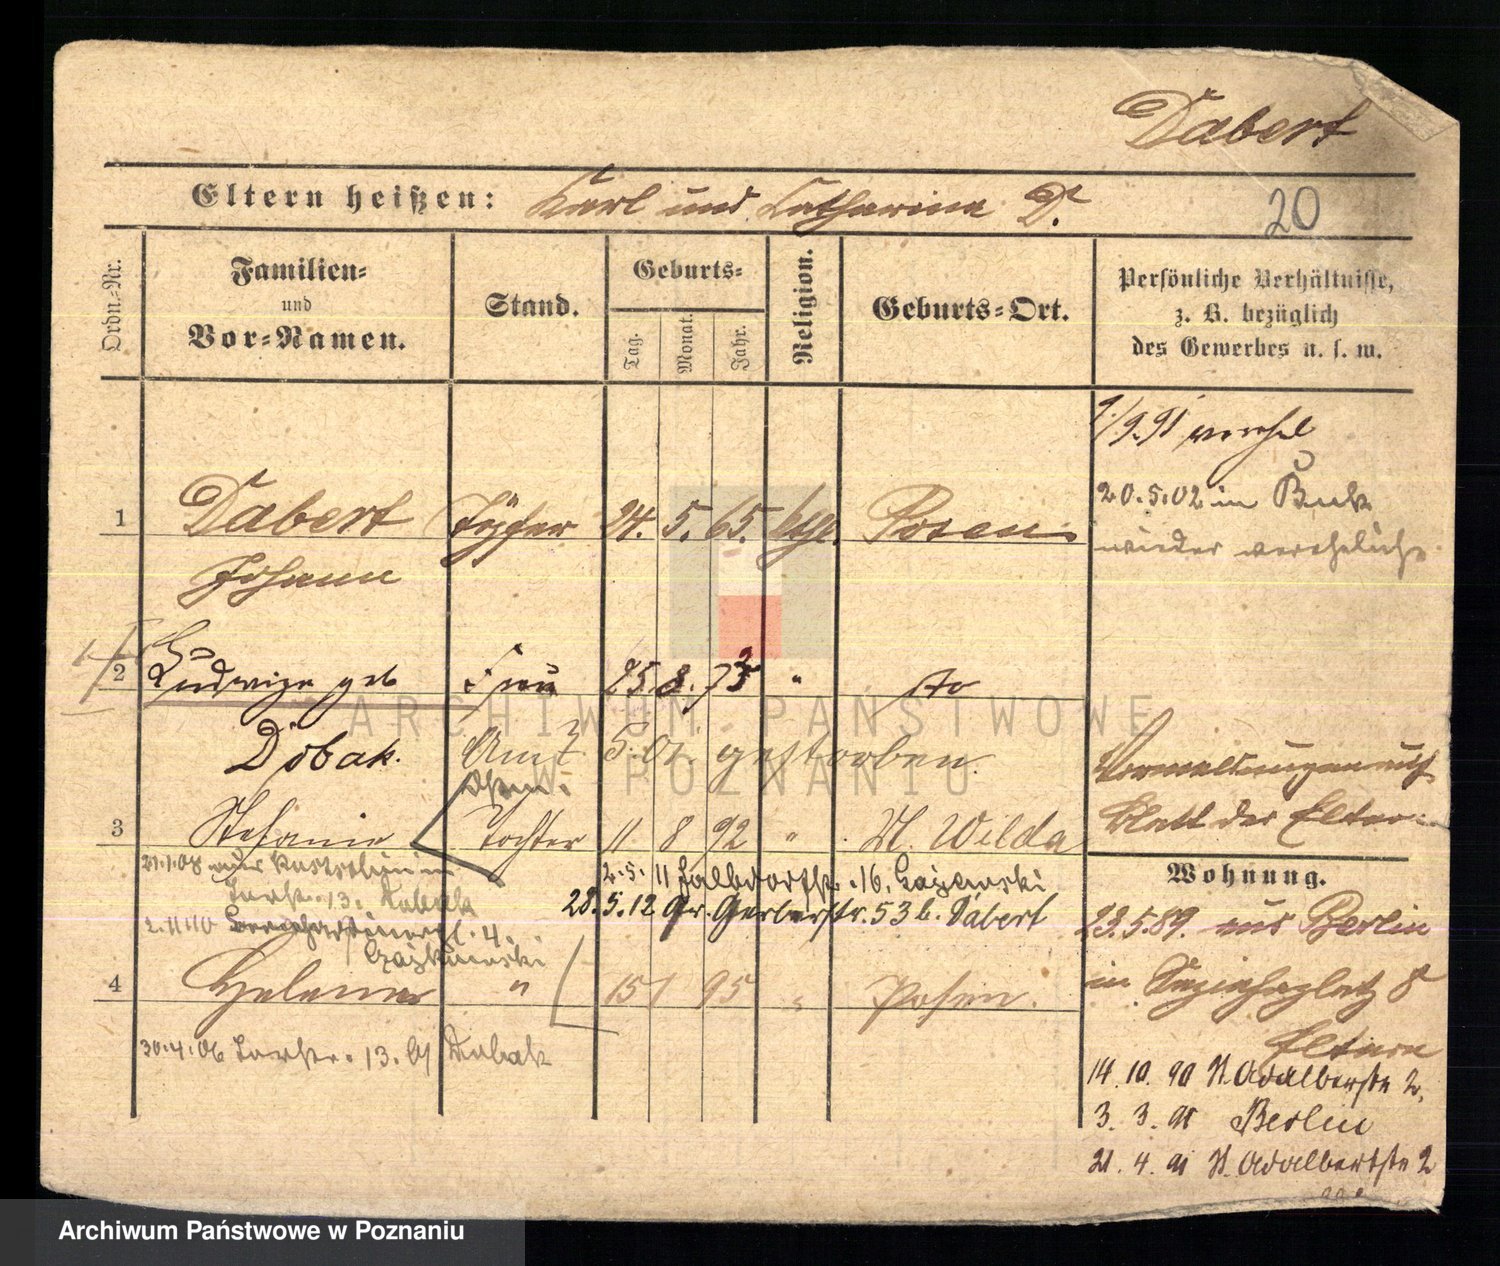 Dabert
Eltern heißen: Karl und Catharina D.
20
Ordn.-Nr.
Familien-
und
Vor-Namen.
Stand.
Geburts-
Tag.
Monat.
Jahr.
Religion.
Geburts-Ort.
Persönliche Verhältnisse,
z. B. bezüglich
des Gewerbes u. s. w.
9.91 verehel
20.5.02 in Buk
wieder verehelicht
1 Dabert Töpfer 24. 5. 65. Posen
Johann
2 Ludwiga geb Frau 25 8. 73 " dto
Dobak. 5.01. gestorben.
Vermeldungen auf
Blatt der Eltern
3 Stefanie Tochter 11 8 92 " St. Wilda
21.1.08
13. Dabak
2.5.11 Halbdorfstr. 16.
28.5.12 Gr. Gerberstr. 53 b. Dabert
2.11.10 4.
4 Helene " 15 1 95 " Posen.
30.4.06 13. b/ Dabak
Wohnung.
23.5.89. aus Berlin
in 8
Eltern
14. 10. 90 St. Adalbertstr 2.
3. 3. 91 Berlin
21. 4. 91 St. Adalbertstr 2
ARCHIWUM PAŃSTWOWE
W POZNANIU
Archiwum Państwowe w Poznaniu